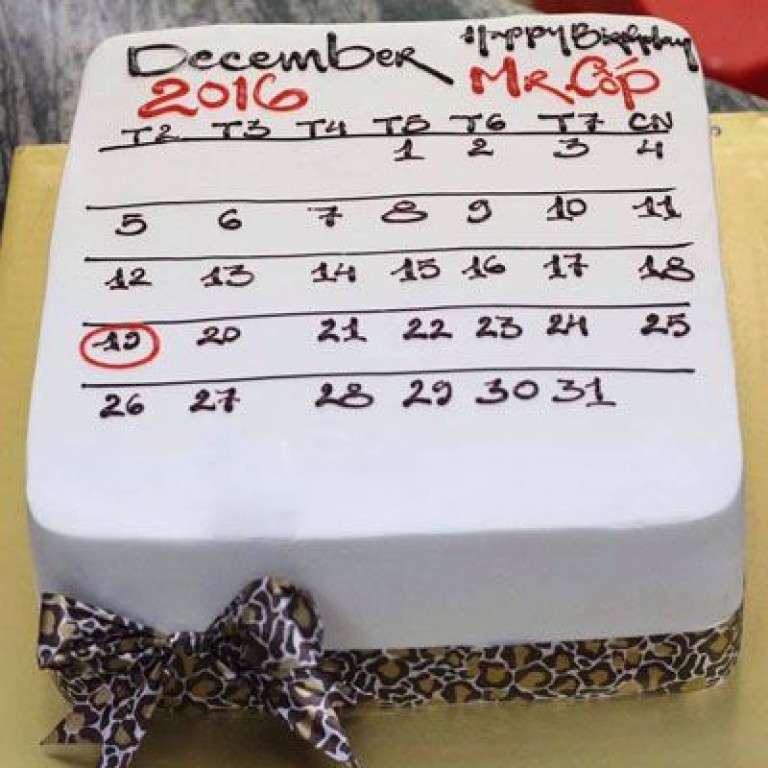 December
2016
Happy Birthday
Mr. Cốp
T2 T3 T4 T5 T6 T7 CN
1 2 3 4
5 6 7 8 9 10 11
12 13 14 15 16 17 18
19 20 21 22 23 24 25
26 27 28 29 30 31